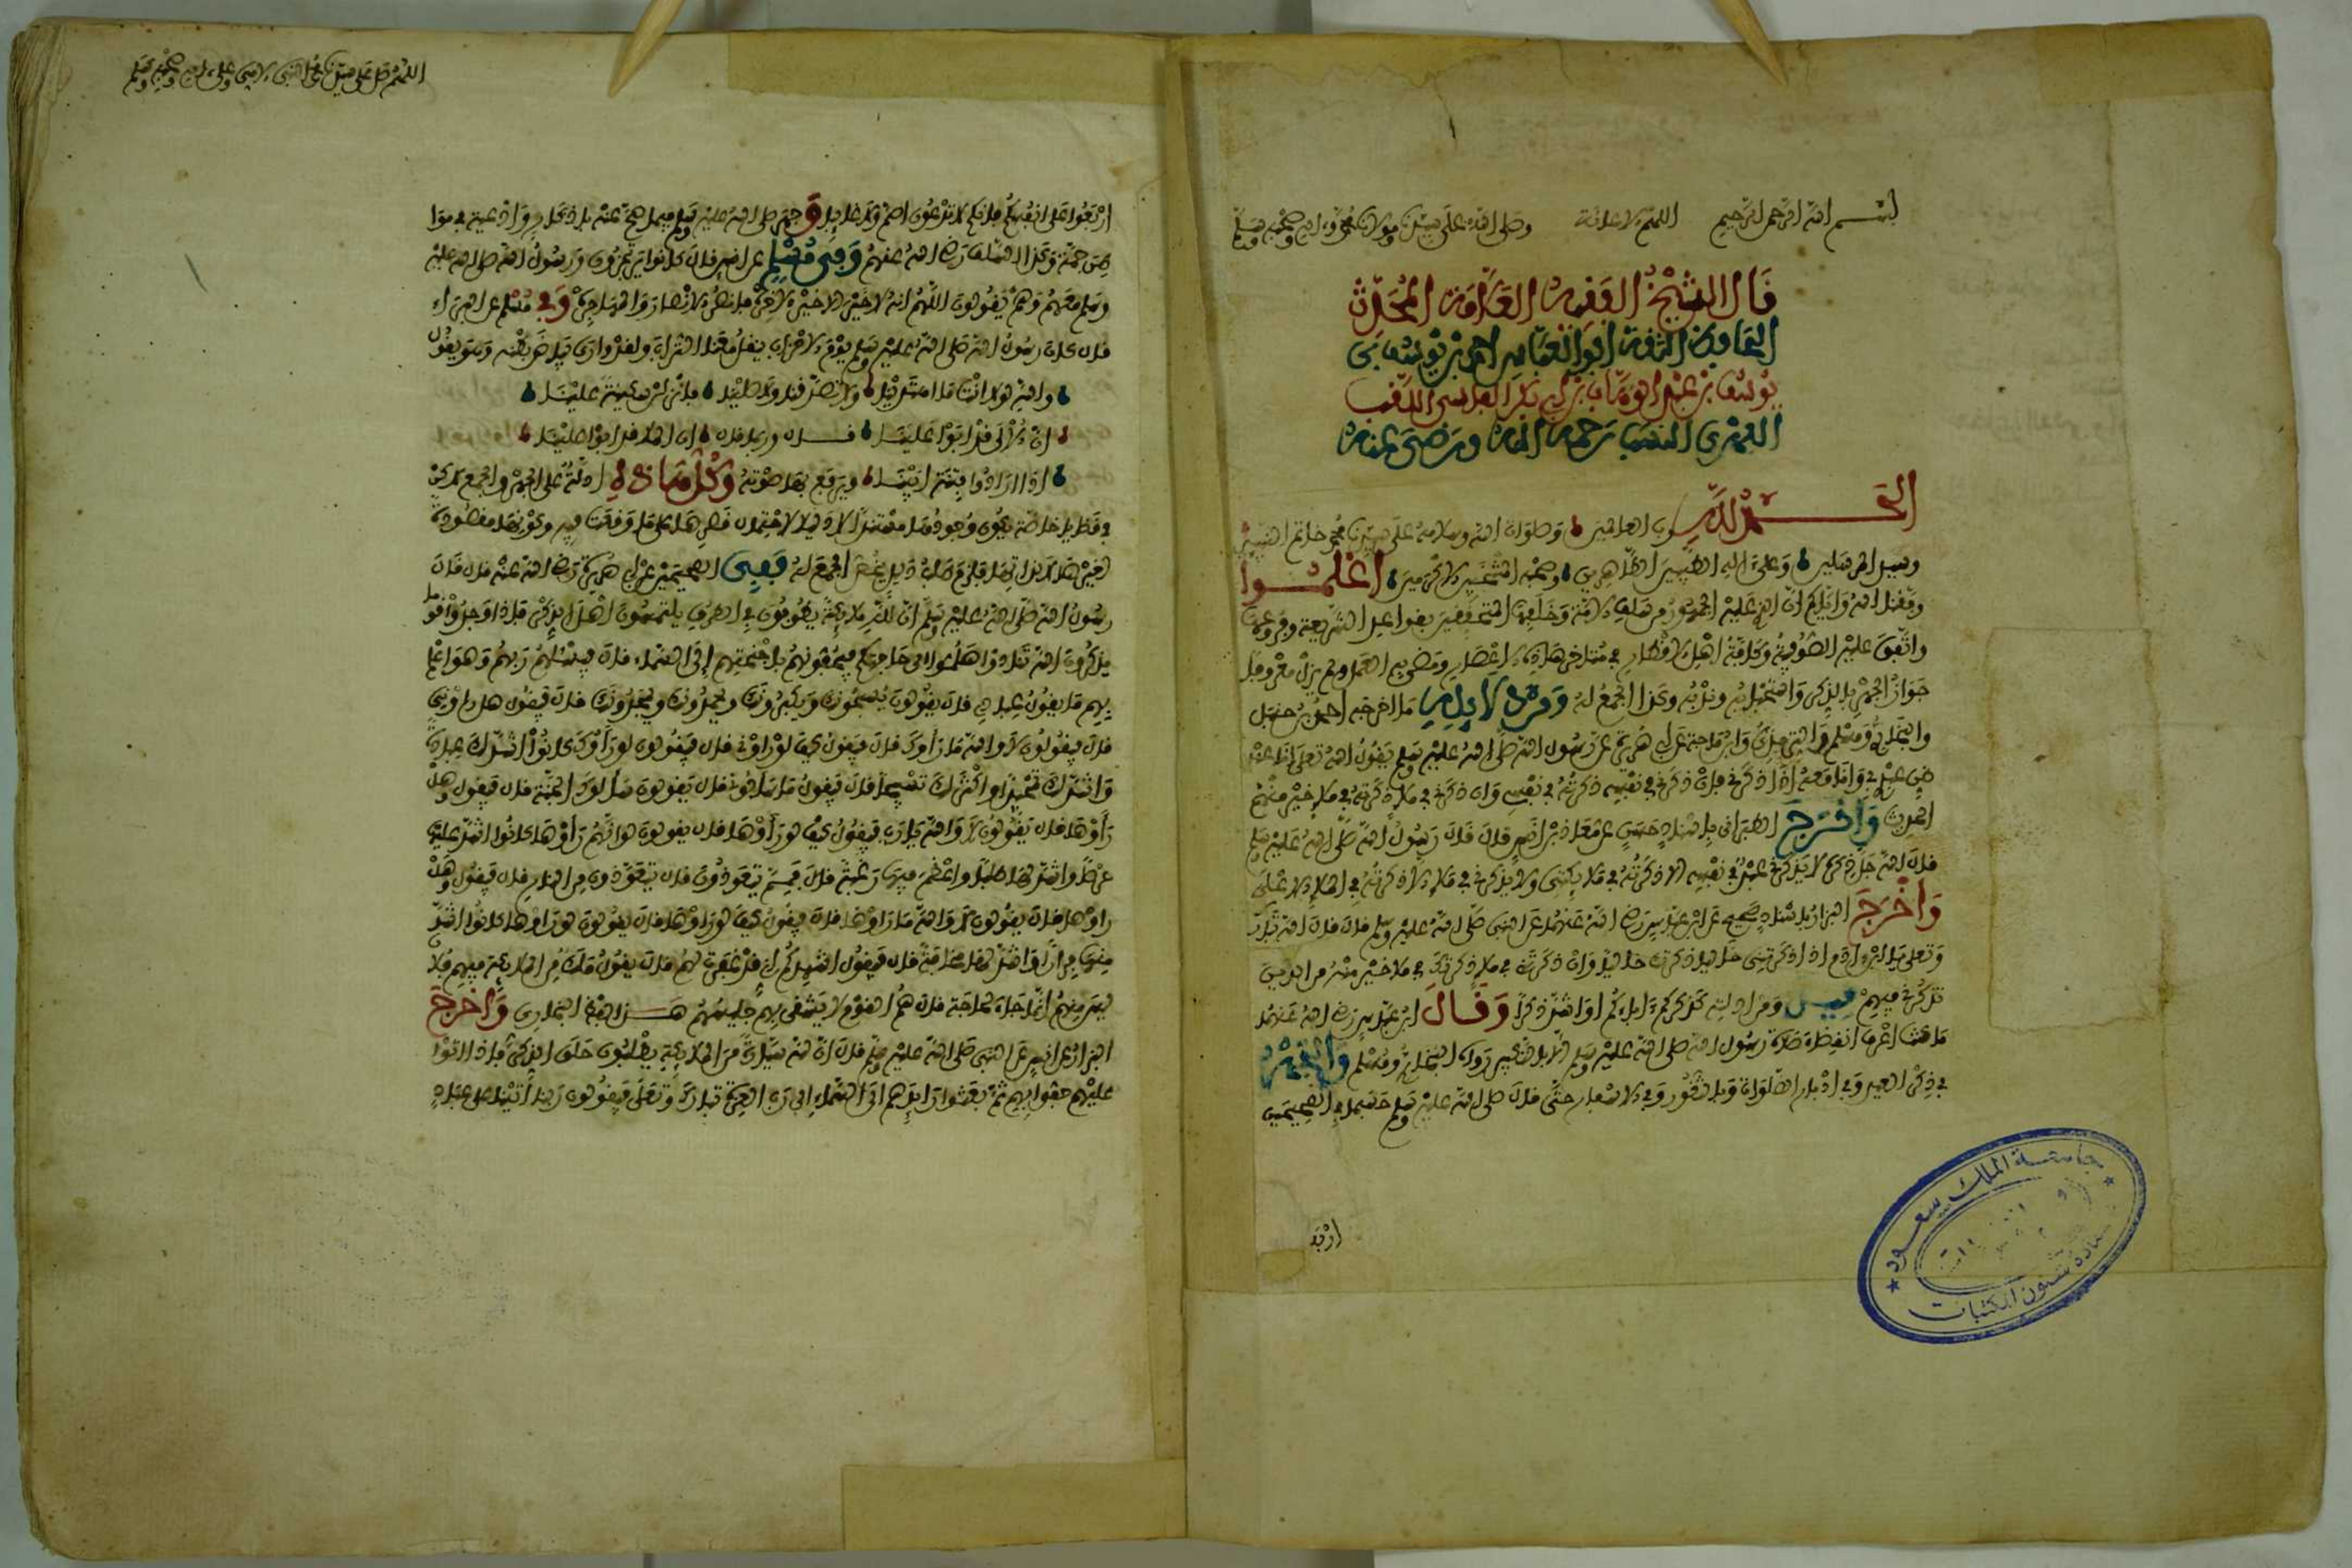 بسم الله الرحمن الرحيم اللهم الإعانة وصلى الله على سيدنا ومولانا محمد وآله وصحبه وسلم
قال الشيخ الفقيه العلامة المحدث
الحافظ الثقة أبو العباس احمد بن يوسف بن
يوسف بن عبد الوهاب بن أبي بكر الفاسي اللقب
الفهري النسب رحمه الله ورضي عنه
الحمد لله رب العالمين وصلوات الله وسلامه على سيدنا محمد خاتم النبيين
وسيد المرسلين وعلى آله الطيبين الطاهرين وصحبه المنتخبين الأكرمين اعلموا
وفقنا الله وإياكم أن الذي عليه الجمهور من سلف الأمة وخلفها المتمسكين بقواعد الشريعة وفروعها
واتفق عليه الصوفية وكافة أهل الأقطار في متأخر هذه الأعصار ومضى به العمل ولم يزل معروفا
جواز الجهر بالذكر واستحبابه وندبه وكذا الجمع له ومن الأدلة ما أخرجه أحمد بن حنبل
والبخاري ومسلم والترمذي وابن ماجة عن أبي هريرة عن رسول الله صلى الله عليه وسلم يقول الله تعالى أنا عند
ظن عبدي بي وأنا معه إذا ذكرني فإن ذكرني في نفسه ذكرته في نفسي وإن ذكرني في ملإ ذكرته في ملإ خير منهم
الحديث وأخرج الطبراني بإسناد حسن عن معاذ بن أنس قال قال رسول الله صلى الله عليه وسلم
قال الله جل ذكره لا يذكرني عبد في نفسه إلا ذكرته في ملإ من ملائكتي ولا يذكرني في ملإ إلا ذكرته في الملإ الأعلى
وأخرج البزار بإسناد صحيح عن ابن عباس رضي الله عنهما عن النبي صلى الله عليه وسلم قال قال الله تبارك
وتعالى يا ابن آدم إذا ذكرتني خاليا ذكرتك خاليا وإن ذكرتني في ملإ ذكرتك في ملإ خير منه من الذين
تذكرني فيهم ومن أدلته كذكركم آباءكم أو أشد ذكرا وقال ابن عباس رضي الله عنهما
ما كنت أعرف انقضاء صلاة رسول الله صلى الله عليه وسلم إلا بالتكبير رواه البخاري ومسلم والتكبير
في ذكر العيد وفي أدبار الصلوات وبالثغور وفي الأسفار حتى قال صلى الله عليه وسلم حسبما في الصحيحين
اربعوا
جامعة الملك سعود
عمادة شئون المكتبات
اللهم صل على سيدنا محمد النبي الأمي وعلى آله وصحبه وسلم
اربعوا على أنفسكم فإنكم لا تدعون أصم ولا غائبا وجهر صلى الله عليه وسلم فيما صح عنه بأذكار وأدعية في مواطن
جمة وكذا السلف رضي الله عنهم وفي مسلم عن أنس قال كانوا يرتجزون ورسول الله صلى الله عليه
وسلم معهم وهم يقولون اللهم إنه لا خير إلا خير الآخرة فانصر الأنصار والمهاجرة وفي مسلم عن البراء
قال كان رسول الله صلى الله عليه وسلم يوم الأحزاب ينقل معنا التراب ولقد وارى بياض بطنه وهو يقول
والله لولا أنت ما اهتدينا ولا تصدقنا ولا صلينا فأنزلن سكينة علينا
إن الألى قد أبوا علينا قال وربما قال إن الملا قد أبوا علينا
إذا أرادوا فتنة أبينا ويرفع بها صوته وكل هذه أدلة على الجهر والجمع لاكن
في قضايا خاصة يكون وجودها مستندا
رسول الله صلى الله عليه وسلم إن لله ملائكة يطوفون في الطرق يلتمسون أهل الذكر فإذا وجدوا قوما
يذكرون الله تنادوا هلموا إلى حاجتكم فيحفونهم بأجنحتهم إلى السماء قال فيسألهم ربهم وهو أعلم
بهم ما يقول عبادي قال يقولون يسبحونك ويكبرونك ويحمدونك ويمجدونك قال فيقول هل رأوني
قال فيقولون لا والله ما رأوك قال فيقول كيف لو رأوني قال فيقولون لو رأوك كانوا أشد لك عبادة
وأشد لك تمجيدا وأكثر لك تسبيحا قال فيقول فما يسألوني قال يقولون يسألونك الجنة قال فيقول وهل
رأوها قال يقولون لا والله يا رب فيقول كيف لو رأوها قال يقولون لو أنهم رأوها كانوا أشد عليها
حرصا وأشد لها طلبا وأعظم فيها رغبة قال فمم يتعوذون قال يتعوذون من النار قال فيقول وهل
رأوها قال يقولون لا والله ما رأوها قال فيقول كيف لو رأوها قال يقولون لو رأوها كانوا أشد
منها فرارا وأشد لها مخافة قال فيقول أشهدكم أني قد غفرت لهم قال يقول ملك من الملائكة فيهم فلان
ليس منهم إنما جاء لحاجة قال هم القوم لا يشقى بهم جليسهم هذا لفظ البخاري وأخرج
البزار عن أنس عن النبي صلى الله عليه وسلم قال إن لله سيارة من الملائكة يطلبون حلق الذكر فإذا أتوا
عليهم حفوا بهم ثم بعثوا رائدهم إلى السماء إلى رب العزة تبارك وتعالى فيقولون ربنا أتينا على عباد